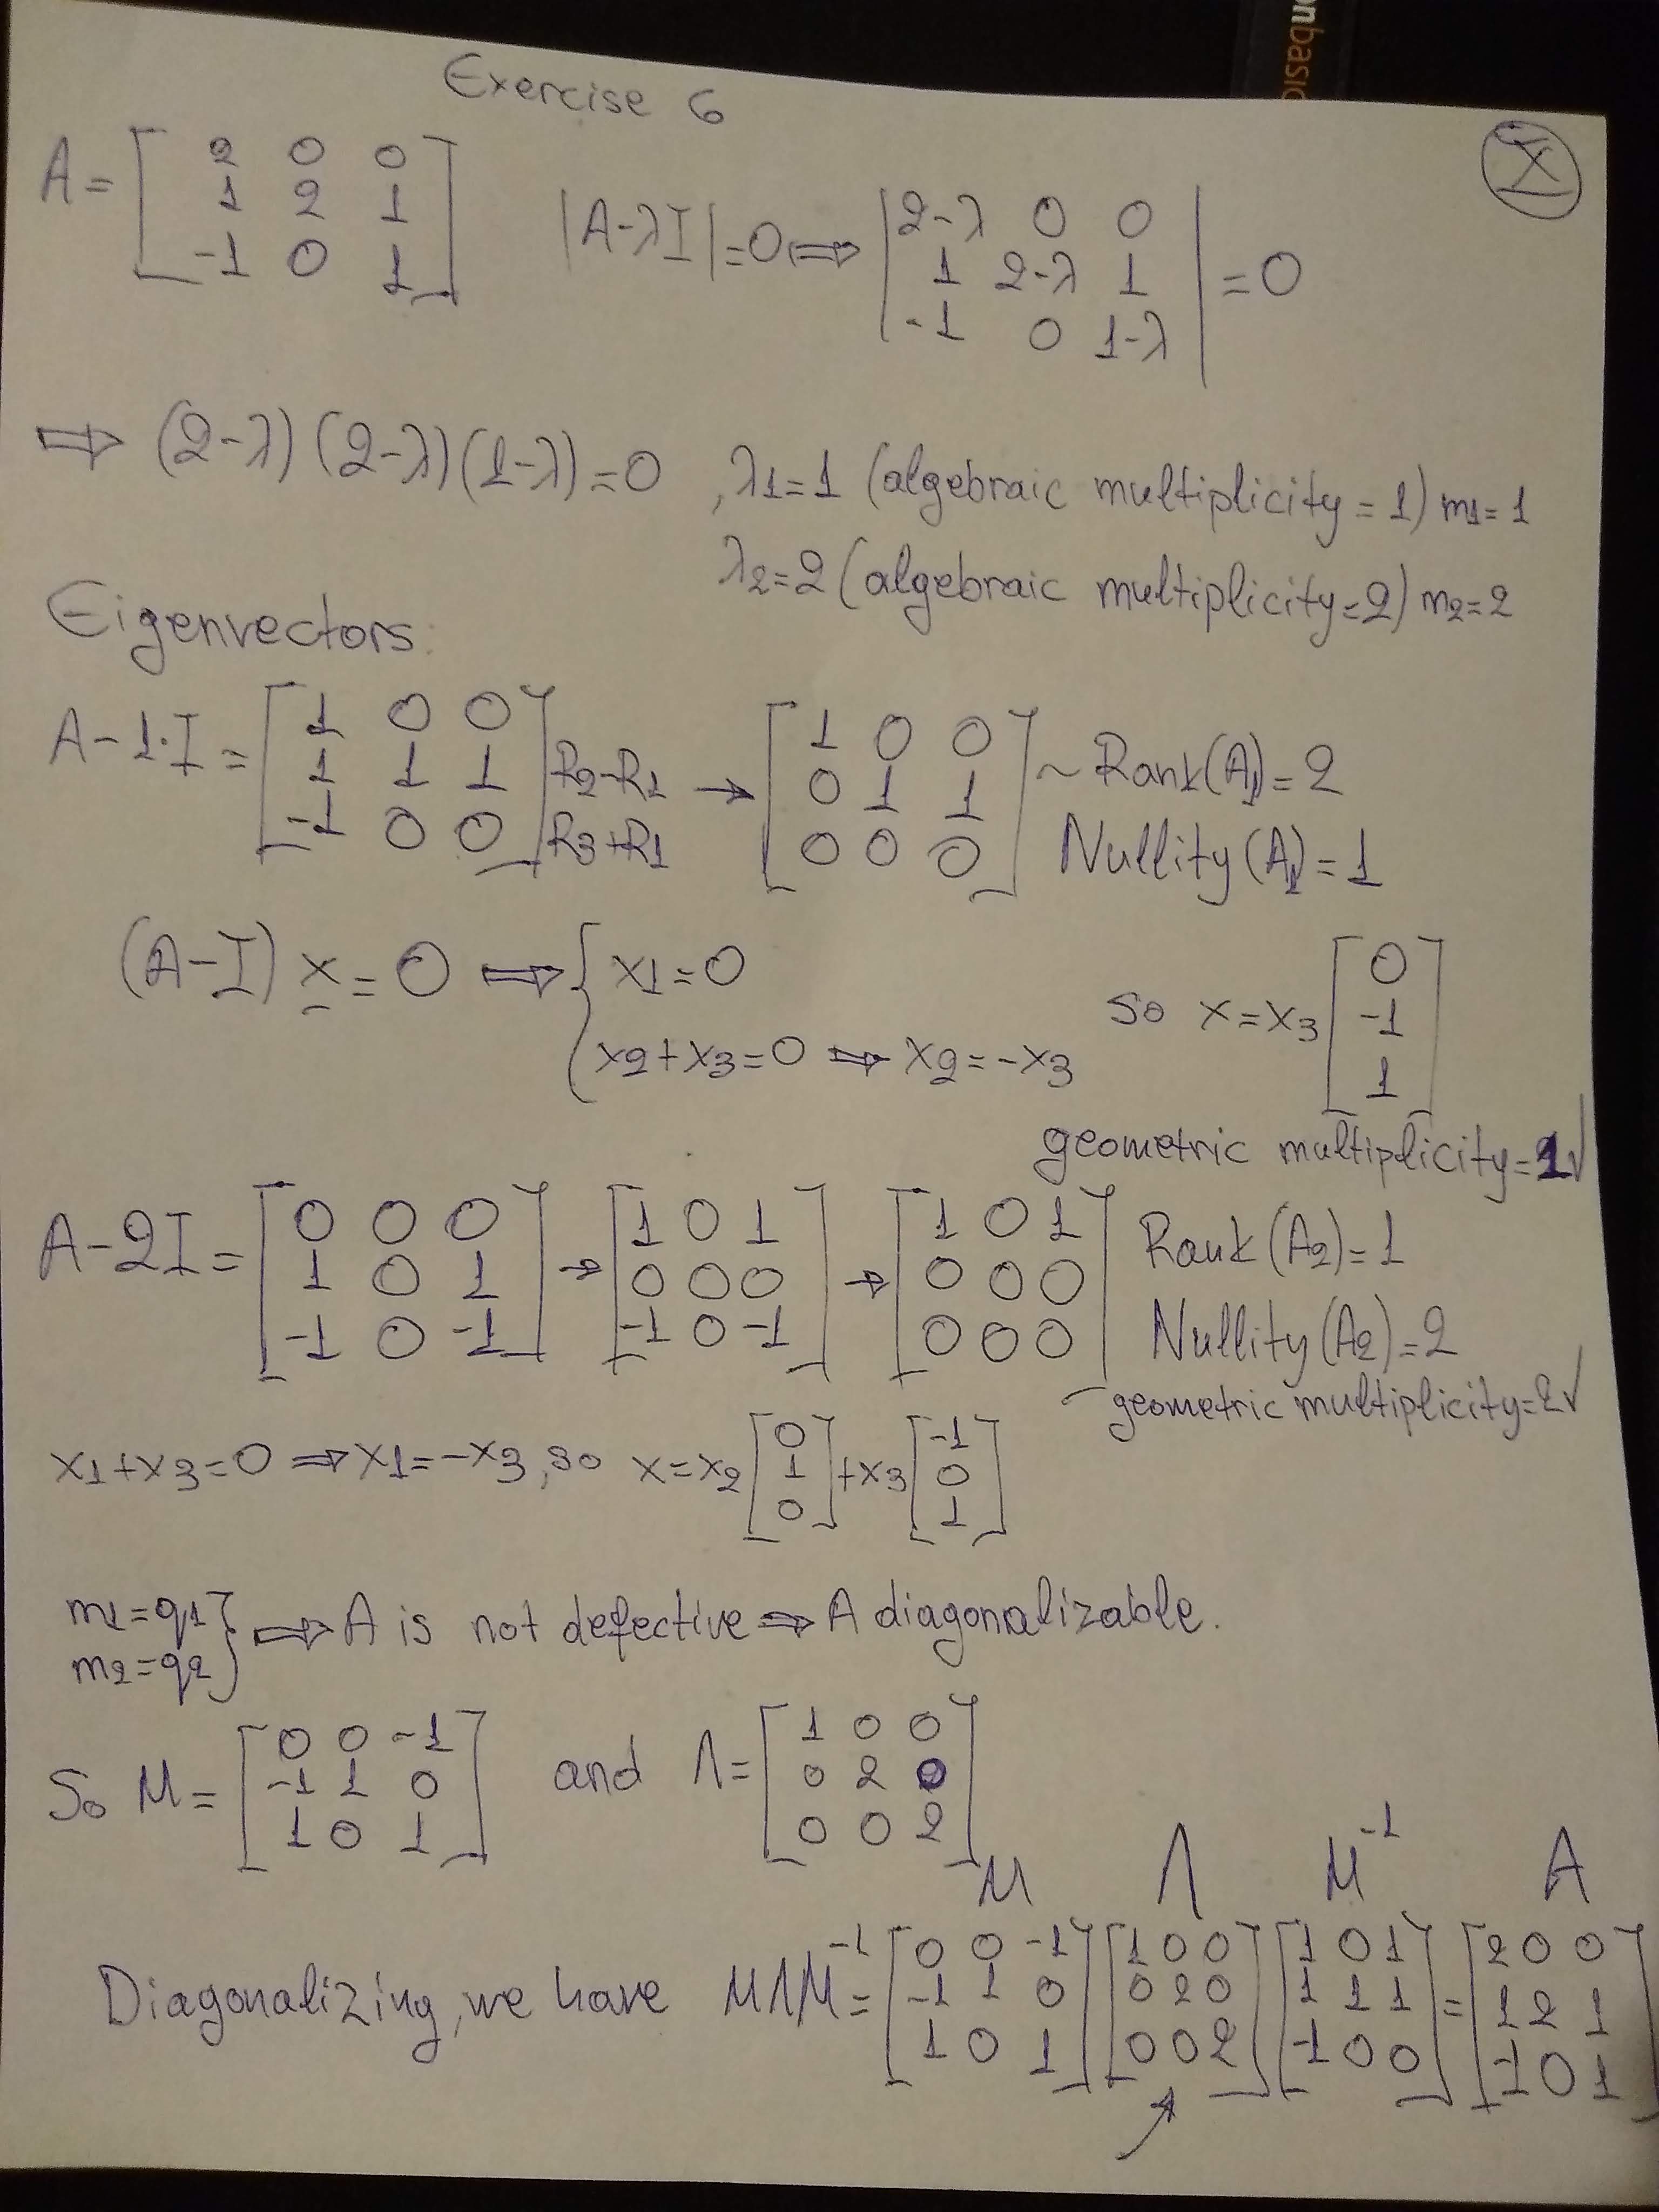 onbasic
Exercise 6
X
A = [2 0 0; 1 2 1; -1 0 1] |A-λI|=0 ⇒ |2-λ 0 0; 1 2-λ 1; -1 0 1-λ| = 0
⇒ (2-λ)(2-λ)(1-λ)=0 , λ1=1 (algebraic multiplicity = 1) m1=1
λ2=2 (algebraic multiplicity=2) m2=2
Eigenvectors:
A-1·I = [1 0 0; 1 1 1; -1 0 0] R2-R1 R3+R1 → [1 0 0; 0 1 1; 0 0 0] ~ Rank(A1)=2
Nullity(A1)=1
(A-I) x = 0 ⇒ { x1=0
x2+x3=0 ⇒ x2=-x3 so x=x3 [0; -1; 1]
geometric multiplicity=1✓
A-2I = [0 0 0; 1 0 1; -1 0 -1] → [1 0 1; 0 0 0; -1 0 -1] → [1 0 1; 0 0 0; 0 0 0] Rank(A2)=1
Nullity(A2)=2
geometric multiplicity=2✓
x1+x3=0 ⇒ x1=-x3, so x=x2 [0; 1; 0] +x3 [-1; 0; 1]
m1=q1
m2=q2 } ⇒ A is not defective ⇒ A diagonalizable.
So M = [0 0 -1; -1 1 0; 1 0 1] and Λ= [1 0 0; 0 2 0; 0 0 2]
M Λ M⁻¹ A
Diagonalizing, we have MΛM⁻¹ = [0 0 -1; -1 1 0; 1 0 1] [1 0 0; 0 2 0; 0 0 2] [1 0 1; 1 1 1; -1 0 0] = [2 0 0; 1 2 1; -1 0 1]